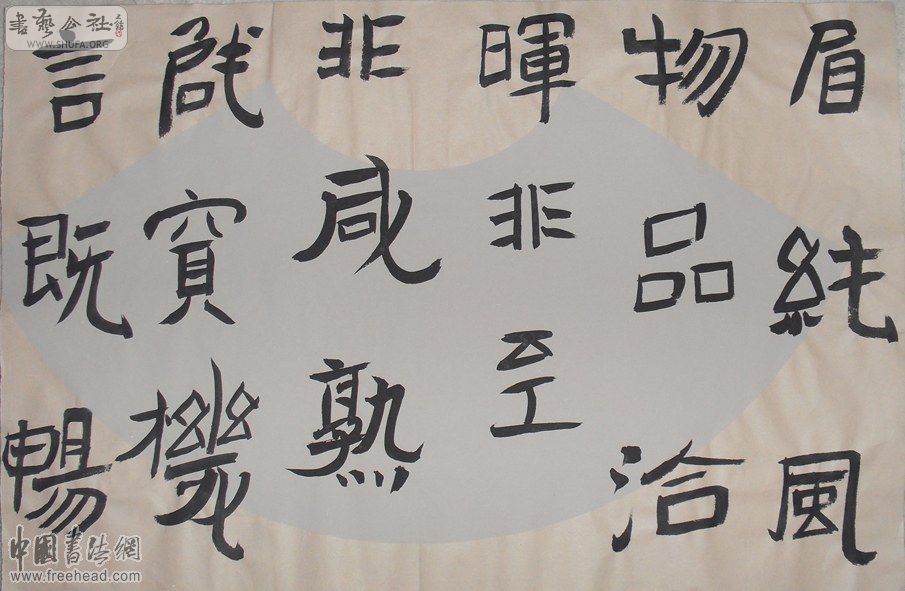 眉純風
物品洽
暉非至
非咸熟
機
言既暢
書藝公社
WWW.SHUFA.ORG
中國書法網
www.freehead.com